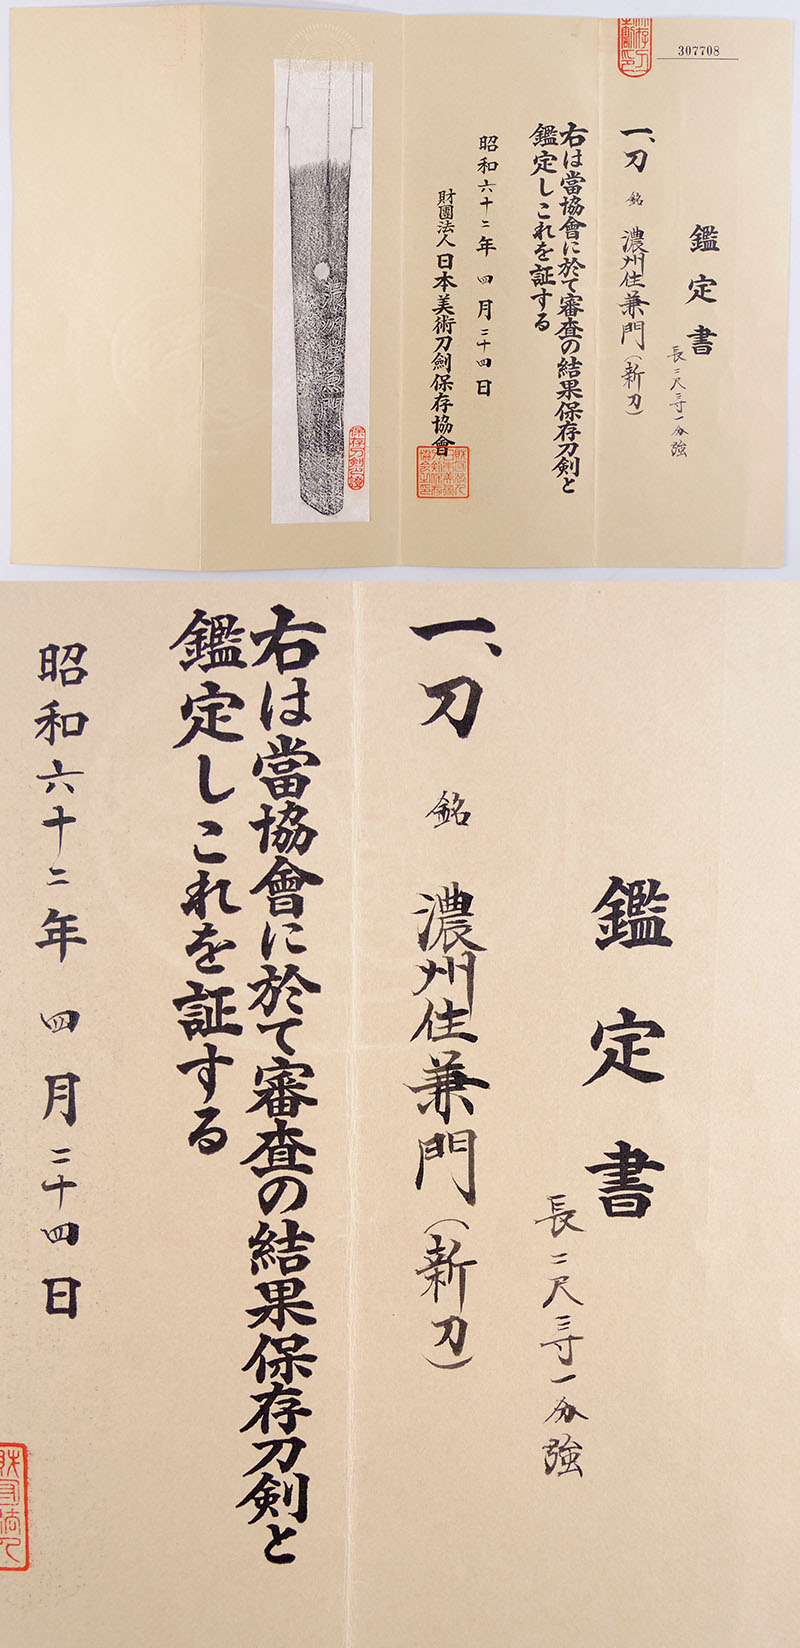 307708
鑑定書
長二尺三寸一分強
一、刀 銘 濃州住兼門(新刀)
右は當協會に於て審査の結果保存刀剣と
鑑定しこれを証する
昭和六十二年四月二十四日
財團法人日本美術刀劍保存協會
濃州住兼門
鑑定書
長二尺三寸一分強
一、刀 銘 濃州住兼門(新刀)
右は當協會に於て審査の結果保存刀剣と
鑑定しこれを証する
昭和六十二年四月二十四日